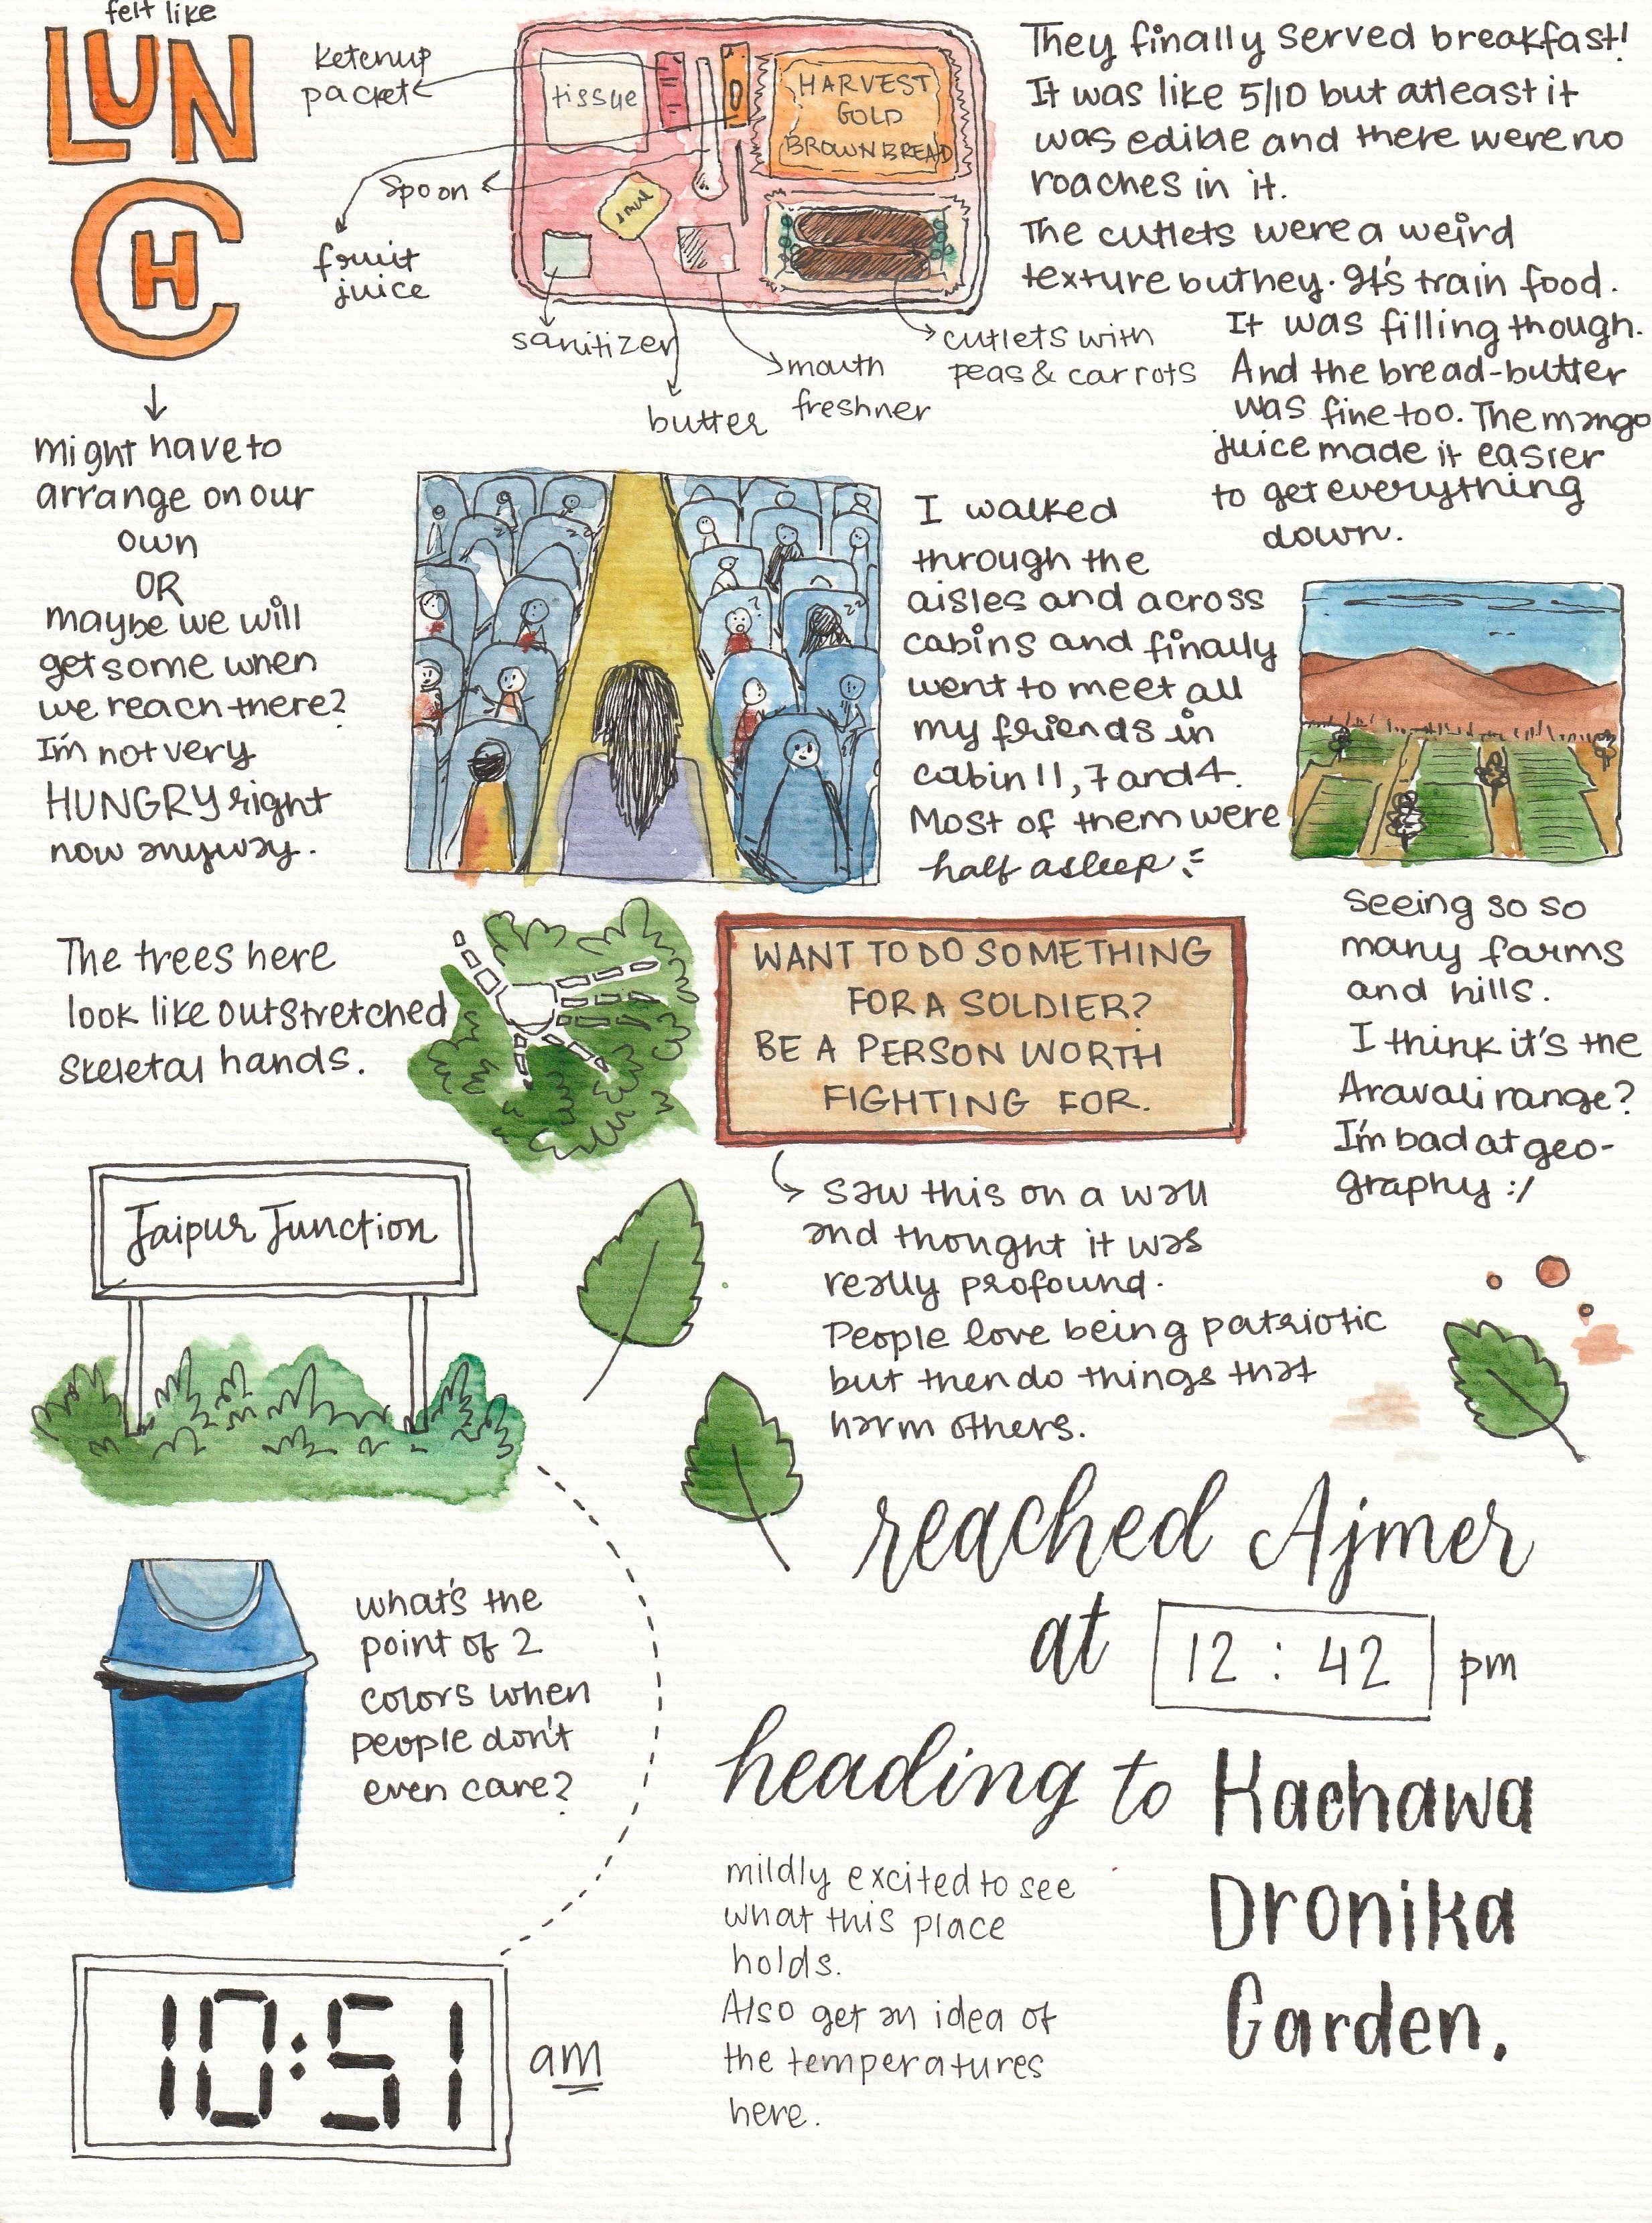 felt like
LUN
CH
might have to
arrange on our
own
OR
maybe we will
get some when
we reach there?
I'm not very
HUNGRY right
now anyway.
ketchup
packet
spoon
fruit
juice
tissue
HARVEST
GOLD
BROWN BREAD
sanitizer
butter
mouth
freshner
cutlets with
peas & carrots
They finally served breakfast!
It was like 5/10 but atleast it
was edible and there were no
roaches in it.
The cutlets were a weird
texture but hey. It's train food.
It was filling though.
And the bread-butter
was fine too. The mango
juice made it easier
to get everything
down.
I walked
through the
aisles and across
cabins and finally
went to meet all
my friends in
cabin 11, 7 and 4.
Most of them were
half asleep :=
seeing so so
many farms
and hills.
I think it's the
Aravali range?
I'm bad at geo-
graphy :/
The trees here
look like outstretched
skeletal hands.
WANT TO DO SOMETHING
FOR A SOLDIER?
BE A PERSON WORTH
FIGHTING FOR.
saw this on a wall
and thought it was
really profound.
People love being patriotic
but then do things that
harm others.
Jaipur Junction
what's the
point of 2
colors when
people don't
even care?
10:51
am
reached Ajmer
at 12 : 42 pm
heading to Kachawa
Dronika
Garden.
mildly excited to see
what this place
holds.
Also get an idea of
the temperatures
here.